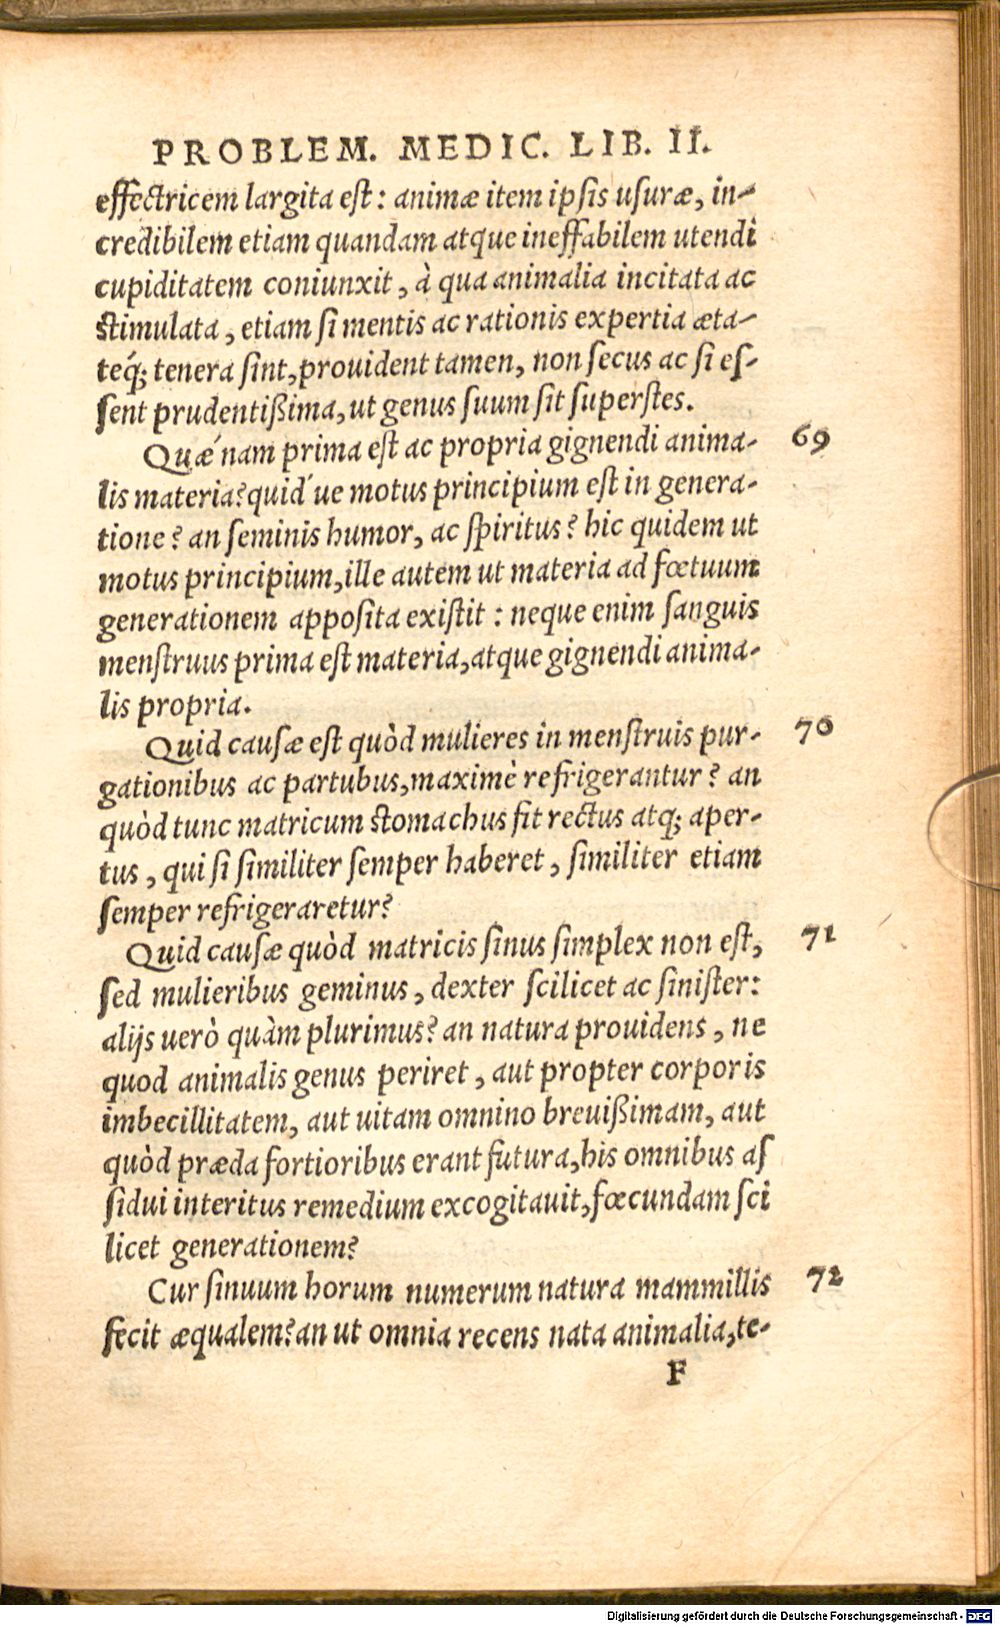 PROBLEM. MEDIC. LIB. II.
effectricem largita est: animæ item ipsis usuræ, in-
credibilem etiam quandam atque ineffabilem utendi
cupiditatem coniunxit, à qua animalia incitata ac
stimulata, etiam si mentis ac rationis expertia æta-
teq́; tenera sint, prouident tamen, non secus ac si es-
sent prudentißima, ut genus suum sit superstes.
Quǽ nam prima est ac propria gignendi anima- 69
lis materia? quid́ ue motus principium est in genera-
tione? an seminis humor, ac spiritus? hic quidem ut
motus principium, ille autem ut materia ad fœtuum
generationem apposita existit: neque enim sanguis
menstruus prima est materia, atque gignendi anima-
lis propria.
Quid causæ est quòd mulieres in menstruis pur- 70
gationibus ac partubus, maximè refrigerantur? an
quòd tunc matricum stomachus fit rectus atq; aper-
tus, qui si similiter semper haberet, similiter etiam
semper refrigeraretur?
Quid causæ quòd matricis sinus simplex non est, 71
sed mulieribus geminus, dexter scilicet ac sinister:
alijs uerò quàm plurimus? an natura prouidens, ne
quod animalis genus periret, aut propter corporis
imbecillitatem, aut uitam omnino breuißimam, aut
quòd præda fortioribus erant futura, his omnibus as
sidui interitus remedium excogitauit, fœcundam sci
licet generationem?
Cur sinuum horum numerum natura mammillis 72
fecit æqualem? an ut omnia recens nata animalia, te-
F
Digitalisierung gefördert durch die Deutsche Forschungsgemeinschaft - DFG